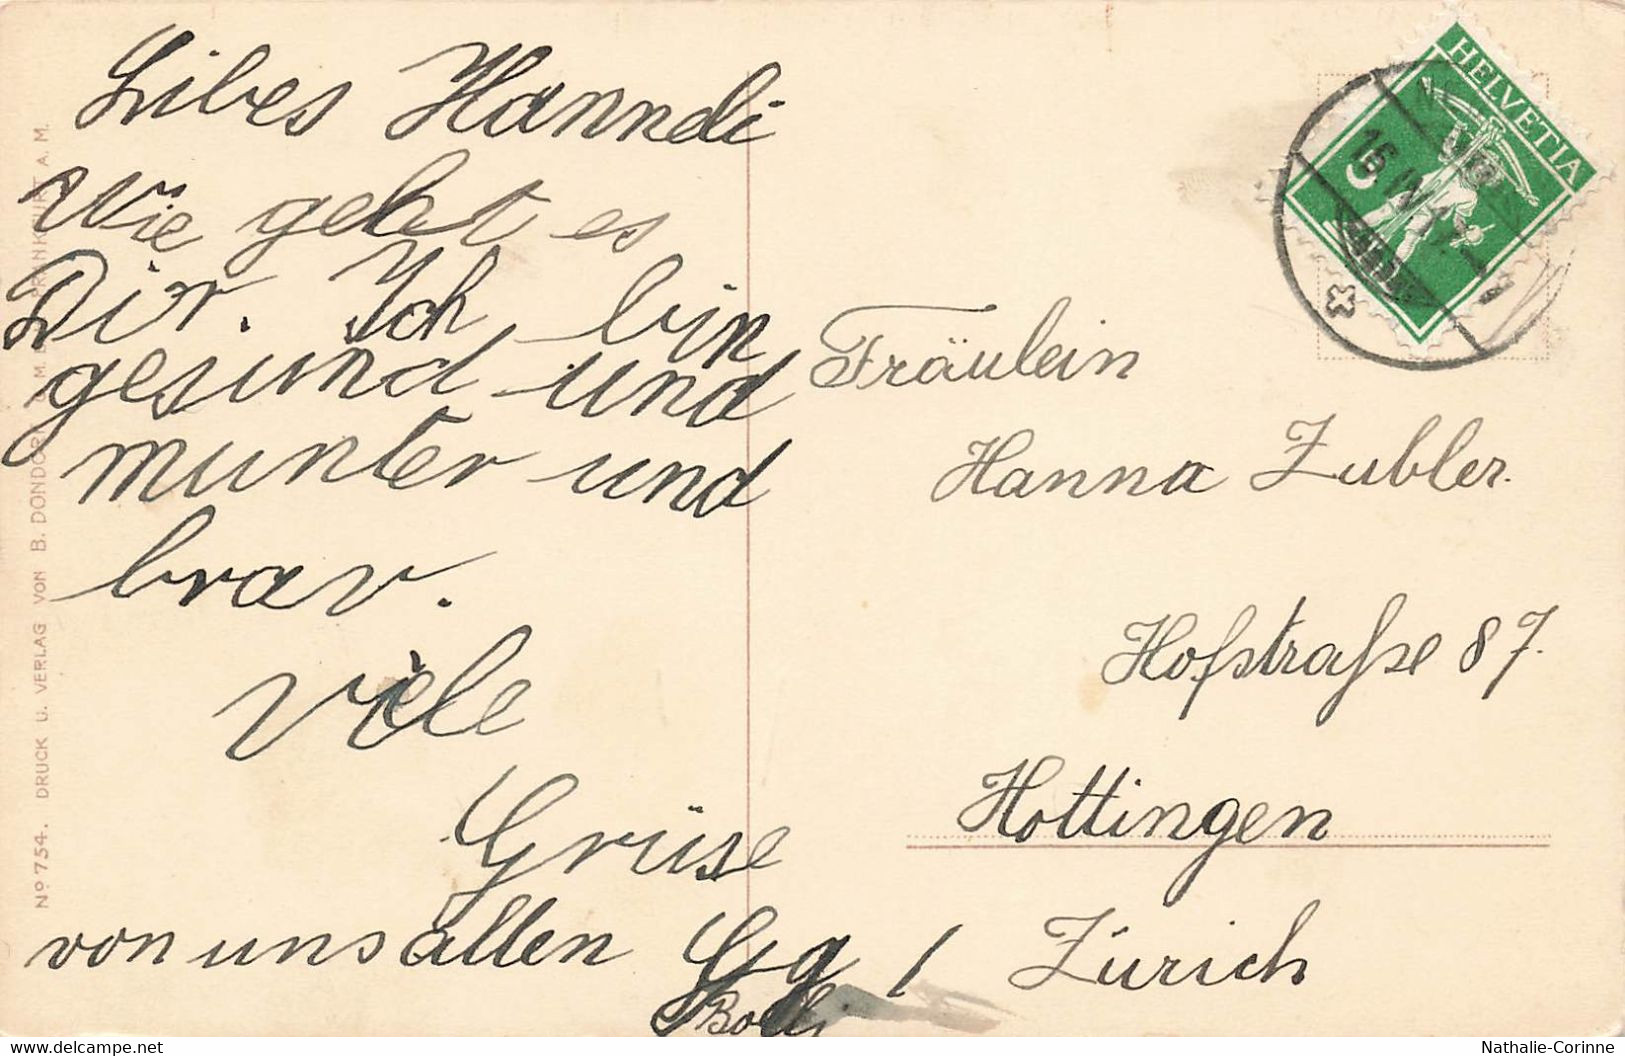 Libes Hanndi
Wie geht es
Dir. Ich bin
gesund und
munter und
brav.
viele
Grüse
von uns allen
Fräulein
Hanna Zubler.
Hofstraße 87.
Hottingen
Zürich
HELVETIA
5
No 754. DRUCK U. VERLAG VON B. DONDORF, G.M.B.H., FRANKFURT A. M.
Nathalie-Corinne